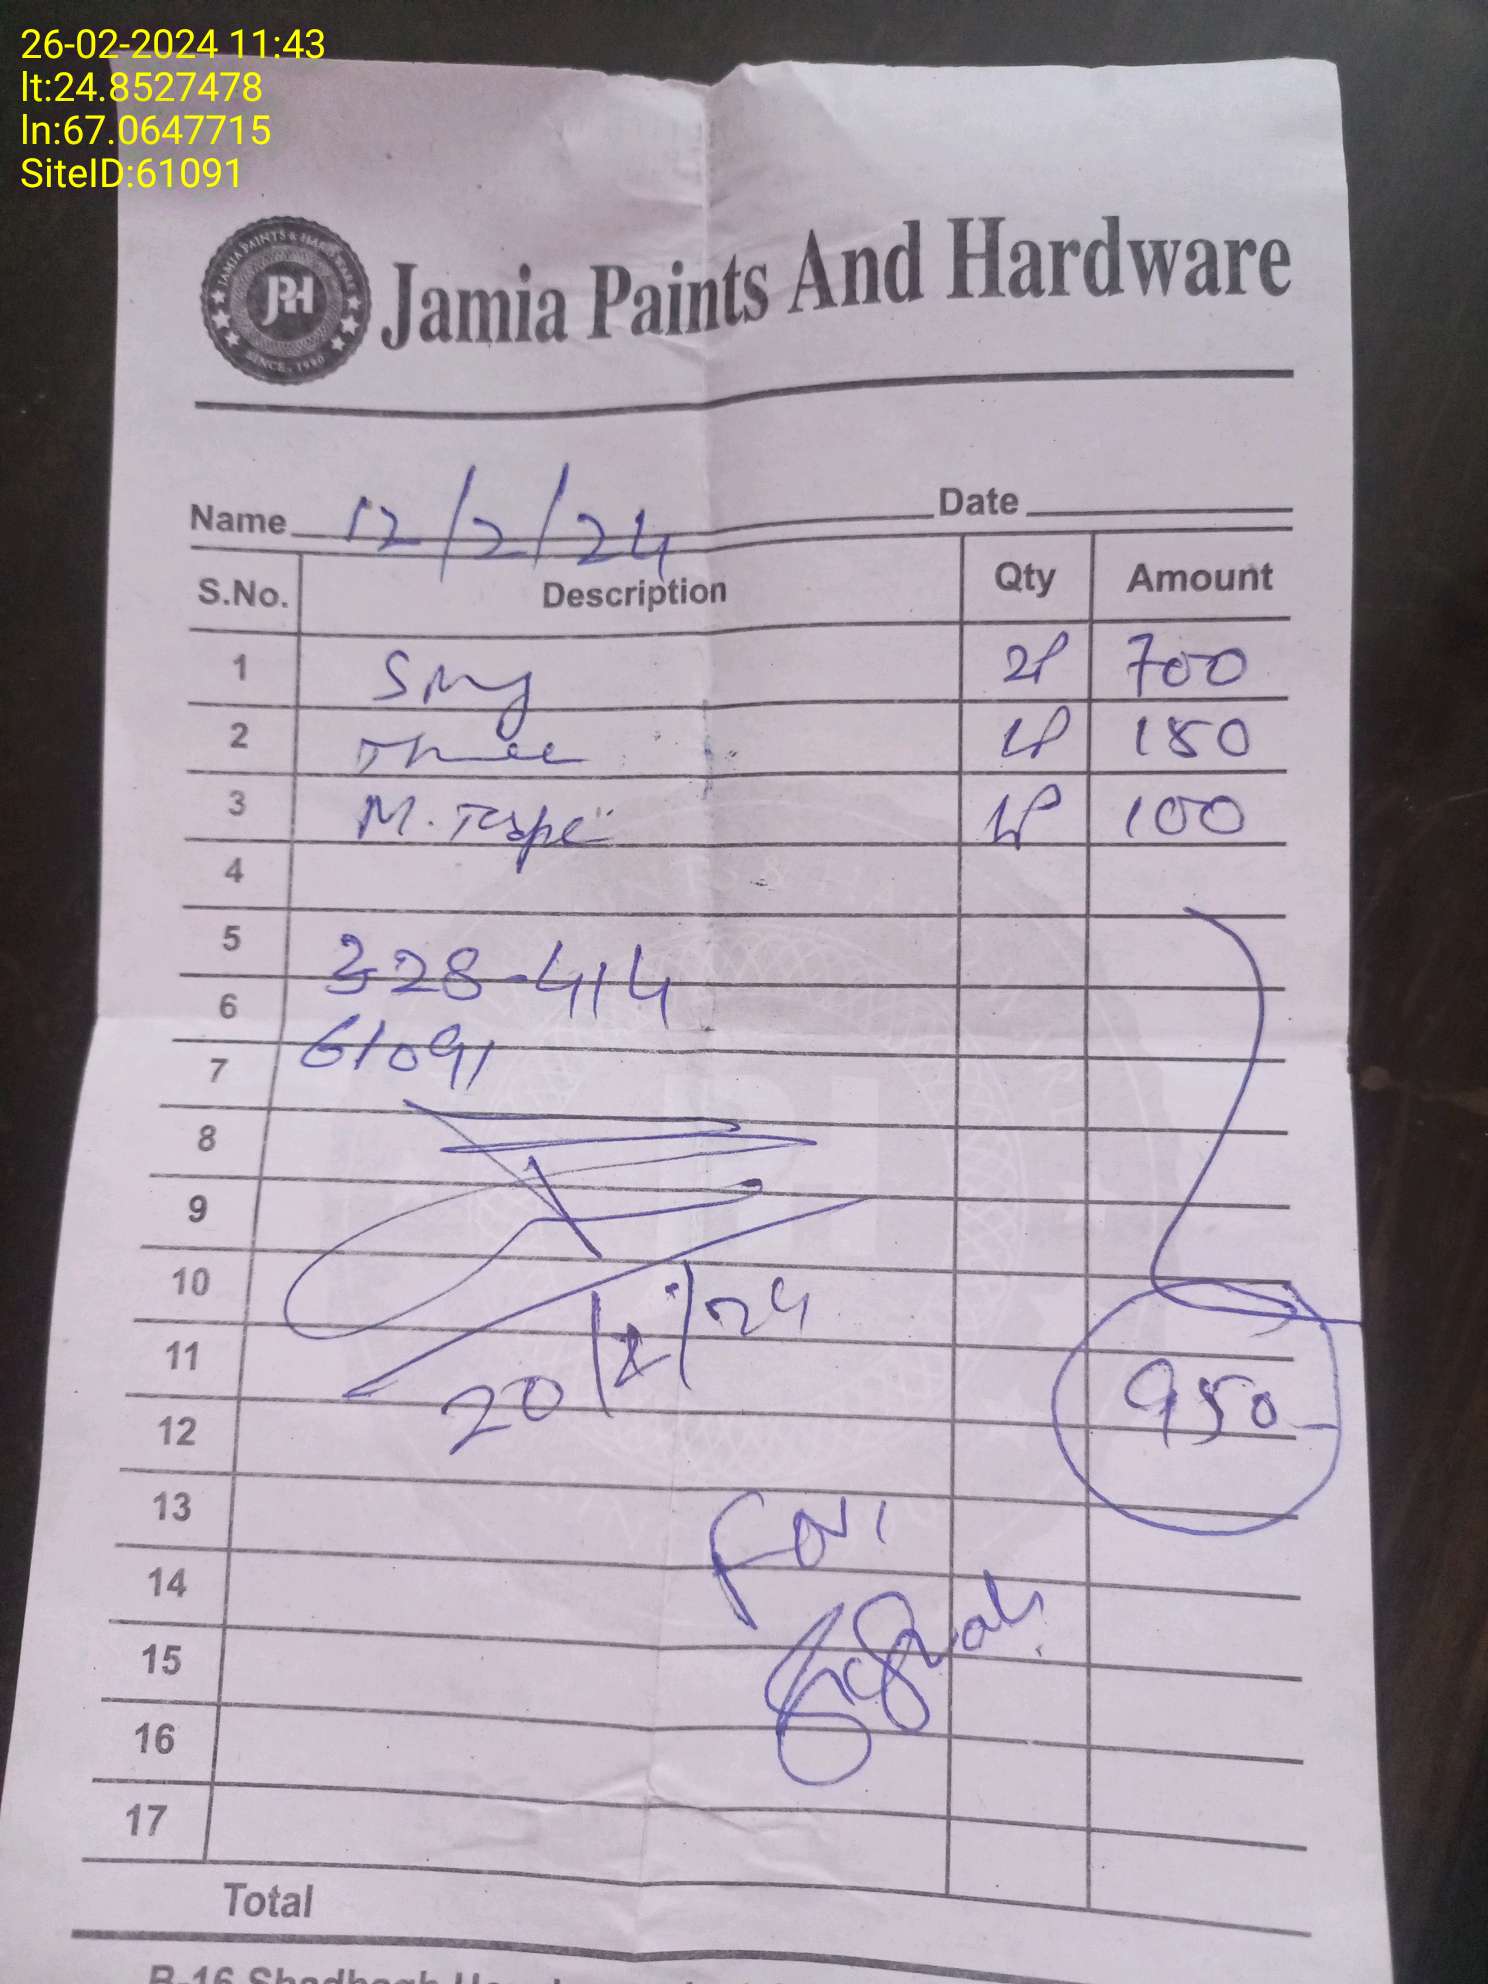 26-02-2024 11:43
lt:24.8527478
ln:67.0647715
SiteID:61091
JAMIA PAINTS & HARDWARE
JPH
SINCE - 1980
Jamia Paints And Hardware
Name 12/2/24 Date
S.No. Description Qty Amount
1 2P 700
2 1P 150
3 M. Tape 1P 100
4
5 328-414
6
7 61091
8
9
10
11 20/2/24
12 950
13 For
14
15
16
17
Total
B-16 Shadbagh